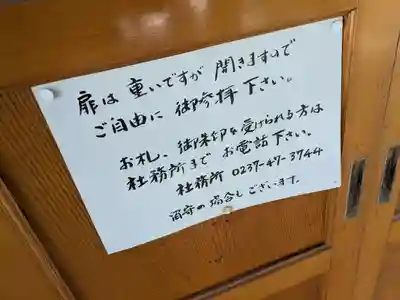 扉は重いですが開きますので
ご自由に御参拝下さい。
お札、御朱印を受けられる方は
社務所までお電話下さい。
社務所 0237-47-3744
留守の場合もございます。